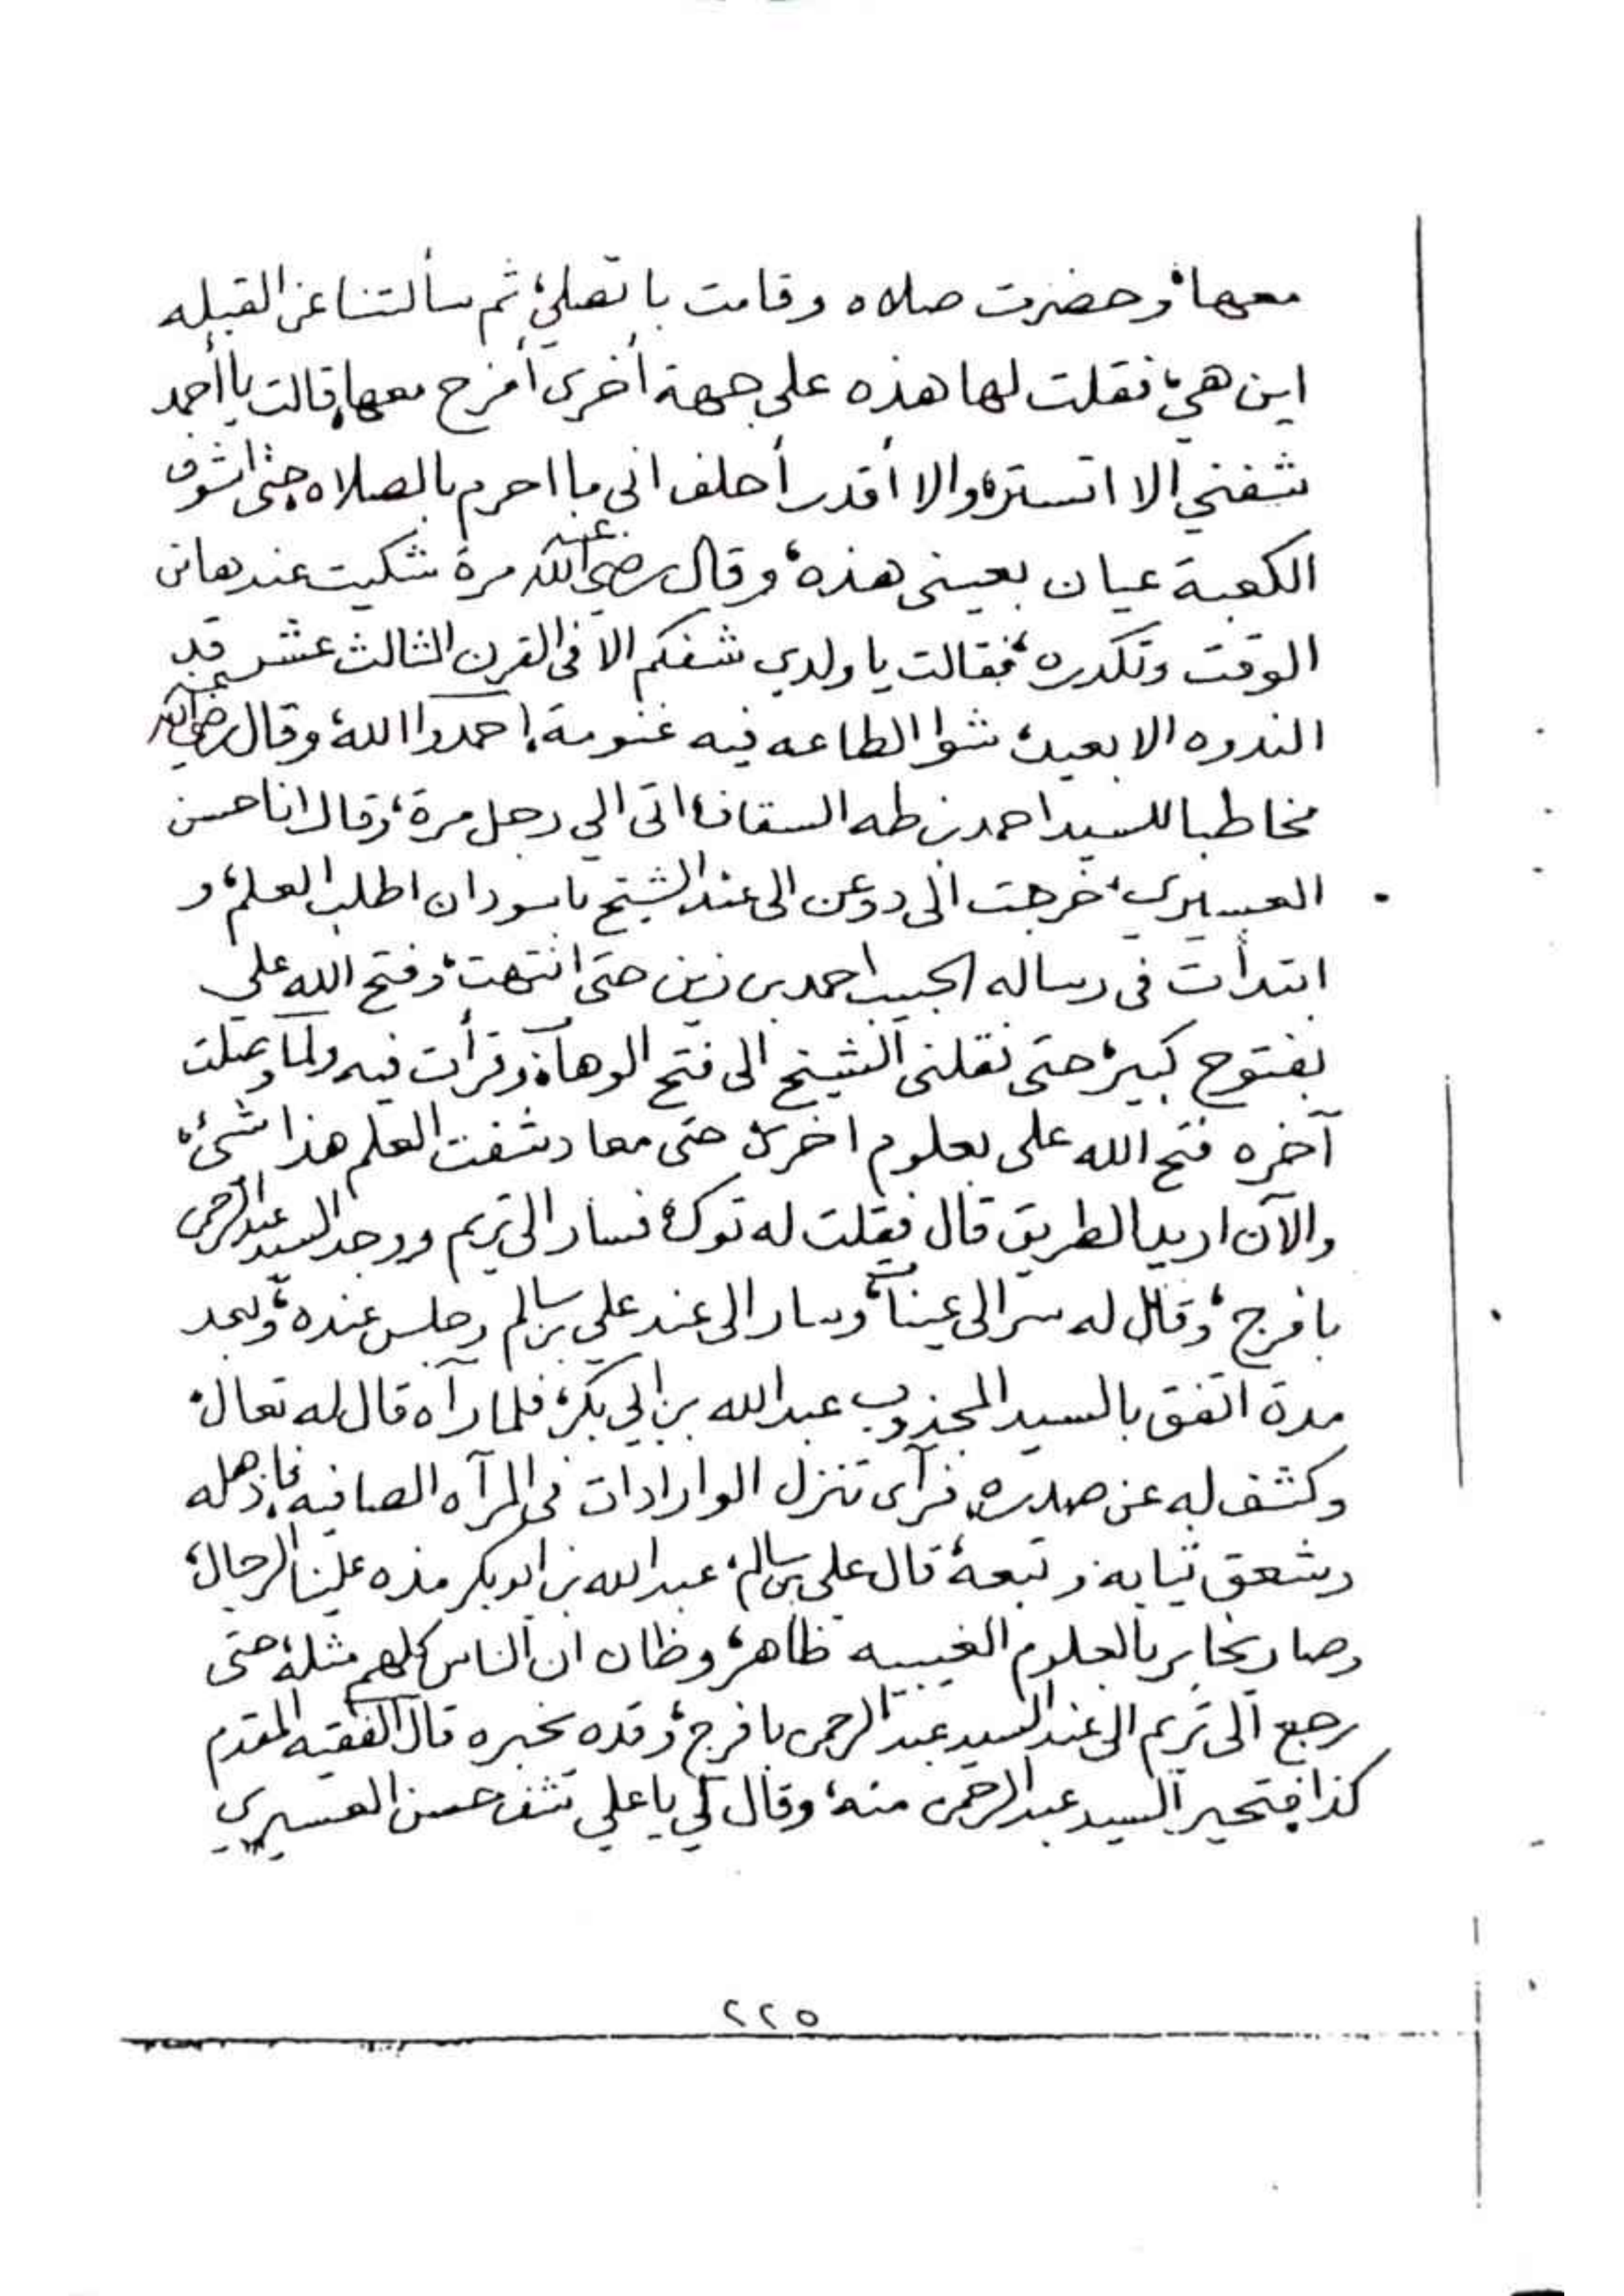 معها، وحضرت صلاه وقامت با تصلي، ثم سألتنا عن القبله
اين هي، فقلت لها هذه على جهة أخرى أمزح معها، قالت يا أحمد
شفني الا اتستر، والا أقدر أحلف اني ما احرم بالصلاه حتى اشوف
الكعبة عيان بعيني هذه، وقال رضي الله عنه مرة شكيت عندها من
الوقت وتكدره، فقالت يا ولدي شفكم الا في القرن الثالث عشر قد
الندوه الا بعيد، شوا الطاعه فيه غنومة، احمدوا الله، وقال رضي الله عنه
مخاطبا للسيد احمد بن طه السقاف، اتى الي رجل مرة، وقال انا حسن
العسيري، خرجت الى دوعن الى عند الشيخ باسودان اطلب العلم، و
ابتدأت في رساله الحبيب احمد بن زين حتى انتهت، وفتح الله علي
بفتوح كبير، حتى نقلني الشيخ الى فتح الوهاب، وقرأت فيه ولما وصلت
آخره فتح الله علي بعلوم اخرى حتى معاد شفت العلم هذا شيء،
والآن اريد الطريق قال فقلت له توكل، فسار الى تريم ووجد السيد عبدالرحمن
بافرج، وقال له سر الى عينات، وسار الى عند علي بن سالم وجلس عنده، وبعد
مدة اتفق بالسيد المجذوب عبدالله بن ابي بكر، فلما رآه قال له تعال،
وكشف له عن صدره، فرآى تنزل الوارادات في المرآه الصافيه، فاذهله
وشعق ثيابه وتبعه، قال علي بن سالم، عبدالله بن ابوبكر هذه علينا الرجال،
وصار يخابر بالعلوم الغيبيه ظاهر، وظان ان الناس كلهم مثله، حتى
رجع الى تريم الى عند السيد عبدالرحمن بافرج، وقده يخبره قال الفقيه المقدم
كذا، فتحير السيد عبدالرحمن منه، وقال لي يا علي شف حسن العسيري
٢٢٥